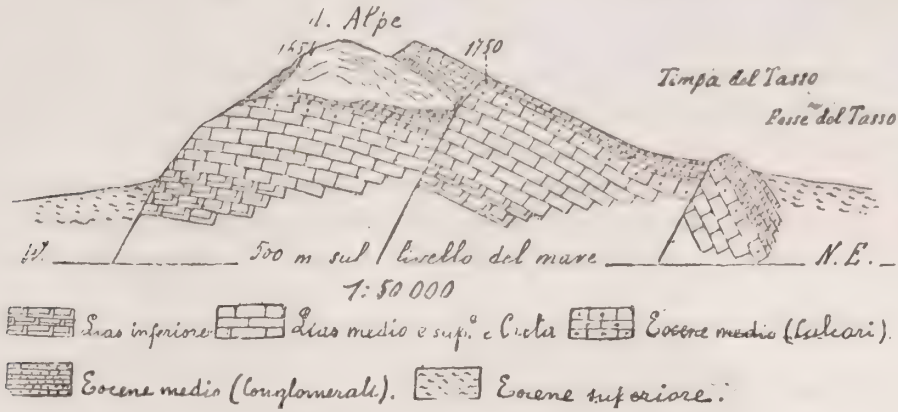 d. Alpe
1750
Timpa del Tasso
Posse del Tasso
500 m sul livello del mare N. E.
1:50 000
Lias inferiore Lias medio e sup.e e Creta Eocene medio (Calcari).
Eocene medio (Conglomerati). Eocene superiore.